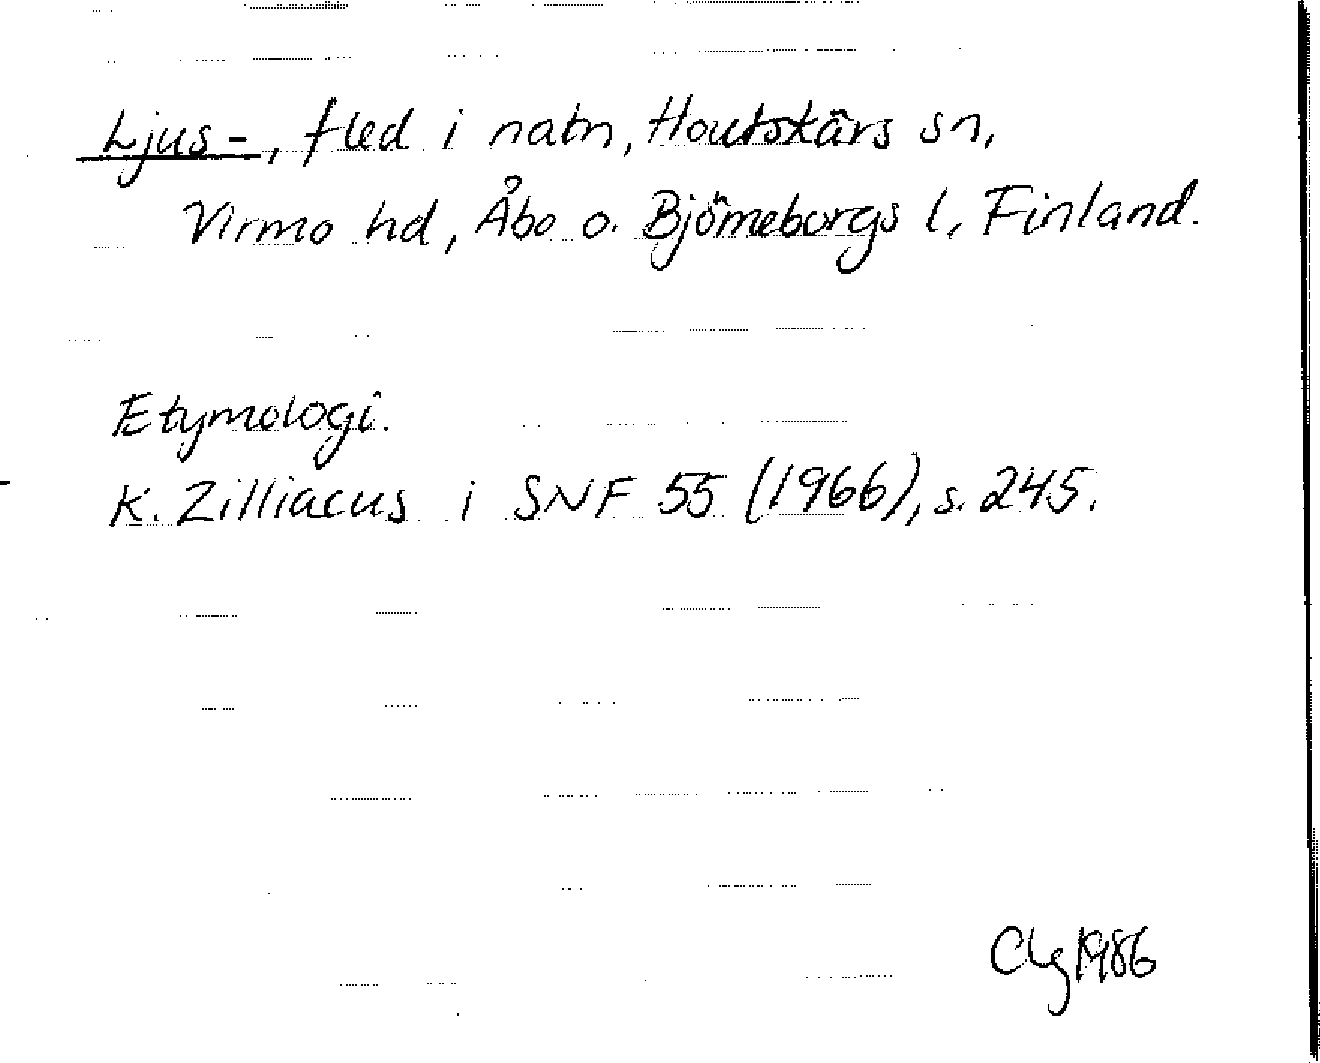 Ljus-, fled i natn, Houtskärs sn,
Virmo hd, Åbo o. Björneborgs l, Finland.
Etymologi.
K. Zilliacus i SNF 55 (1966), s. 245.
Clg 1986